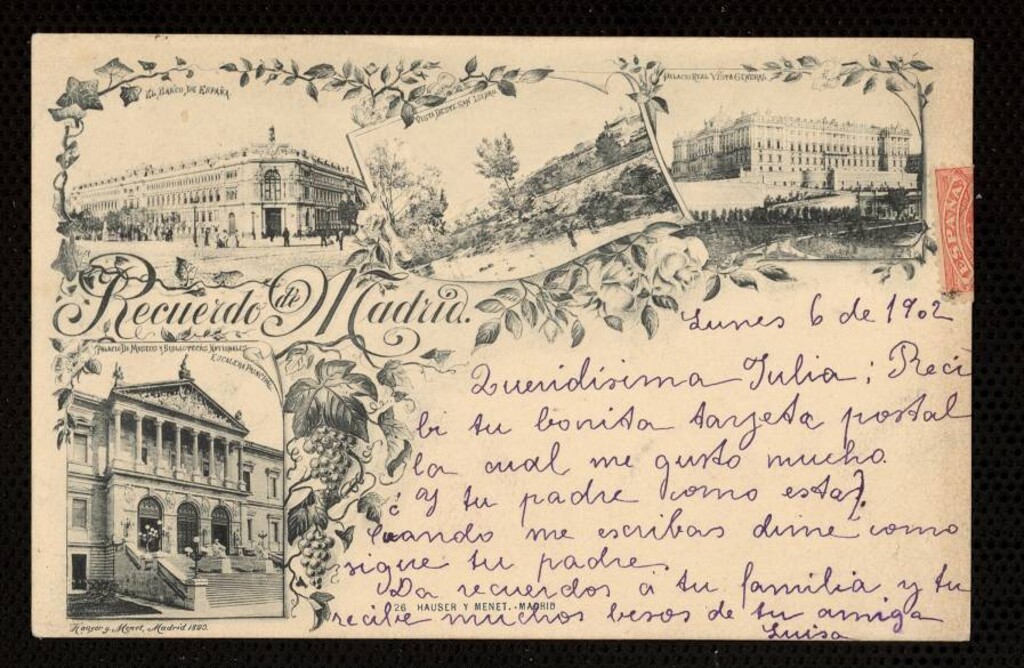 EL BANCO DE ESPAÑA
VISTA DESDE SAN ISIDRO
PALACIO REAL VISTA GENERAL
ESPAÑA
Recuerdo de Madrid.
PALACIO DE MUSEOS Y BIBLIOTECAS NACIONALES
ESCALERA PRINCIPAL
Lunes 6 de 1902
Queridísima Julia; Reci
bi tu bonita tarjeta postal
la cual me gusto mucho.
¿y tu padre como esta?.
Cuando me escribas dime como
sigue tu padre.
Da recuerdos á tu familia y tu
recibe muchos besos de tu amiga
Luisa
26 HAUSER Y MENET.-MADRID
Hauser y Menet, Madrid